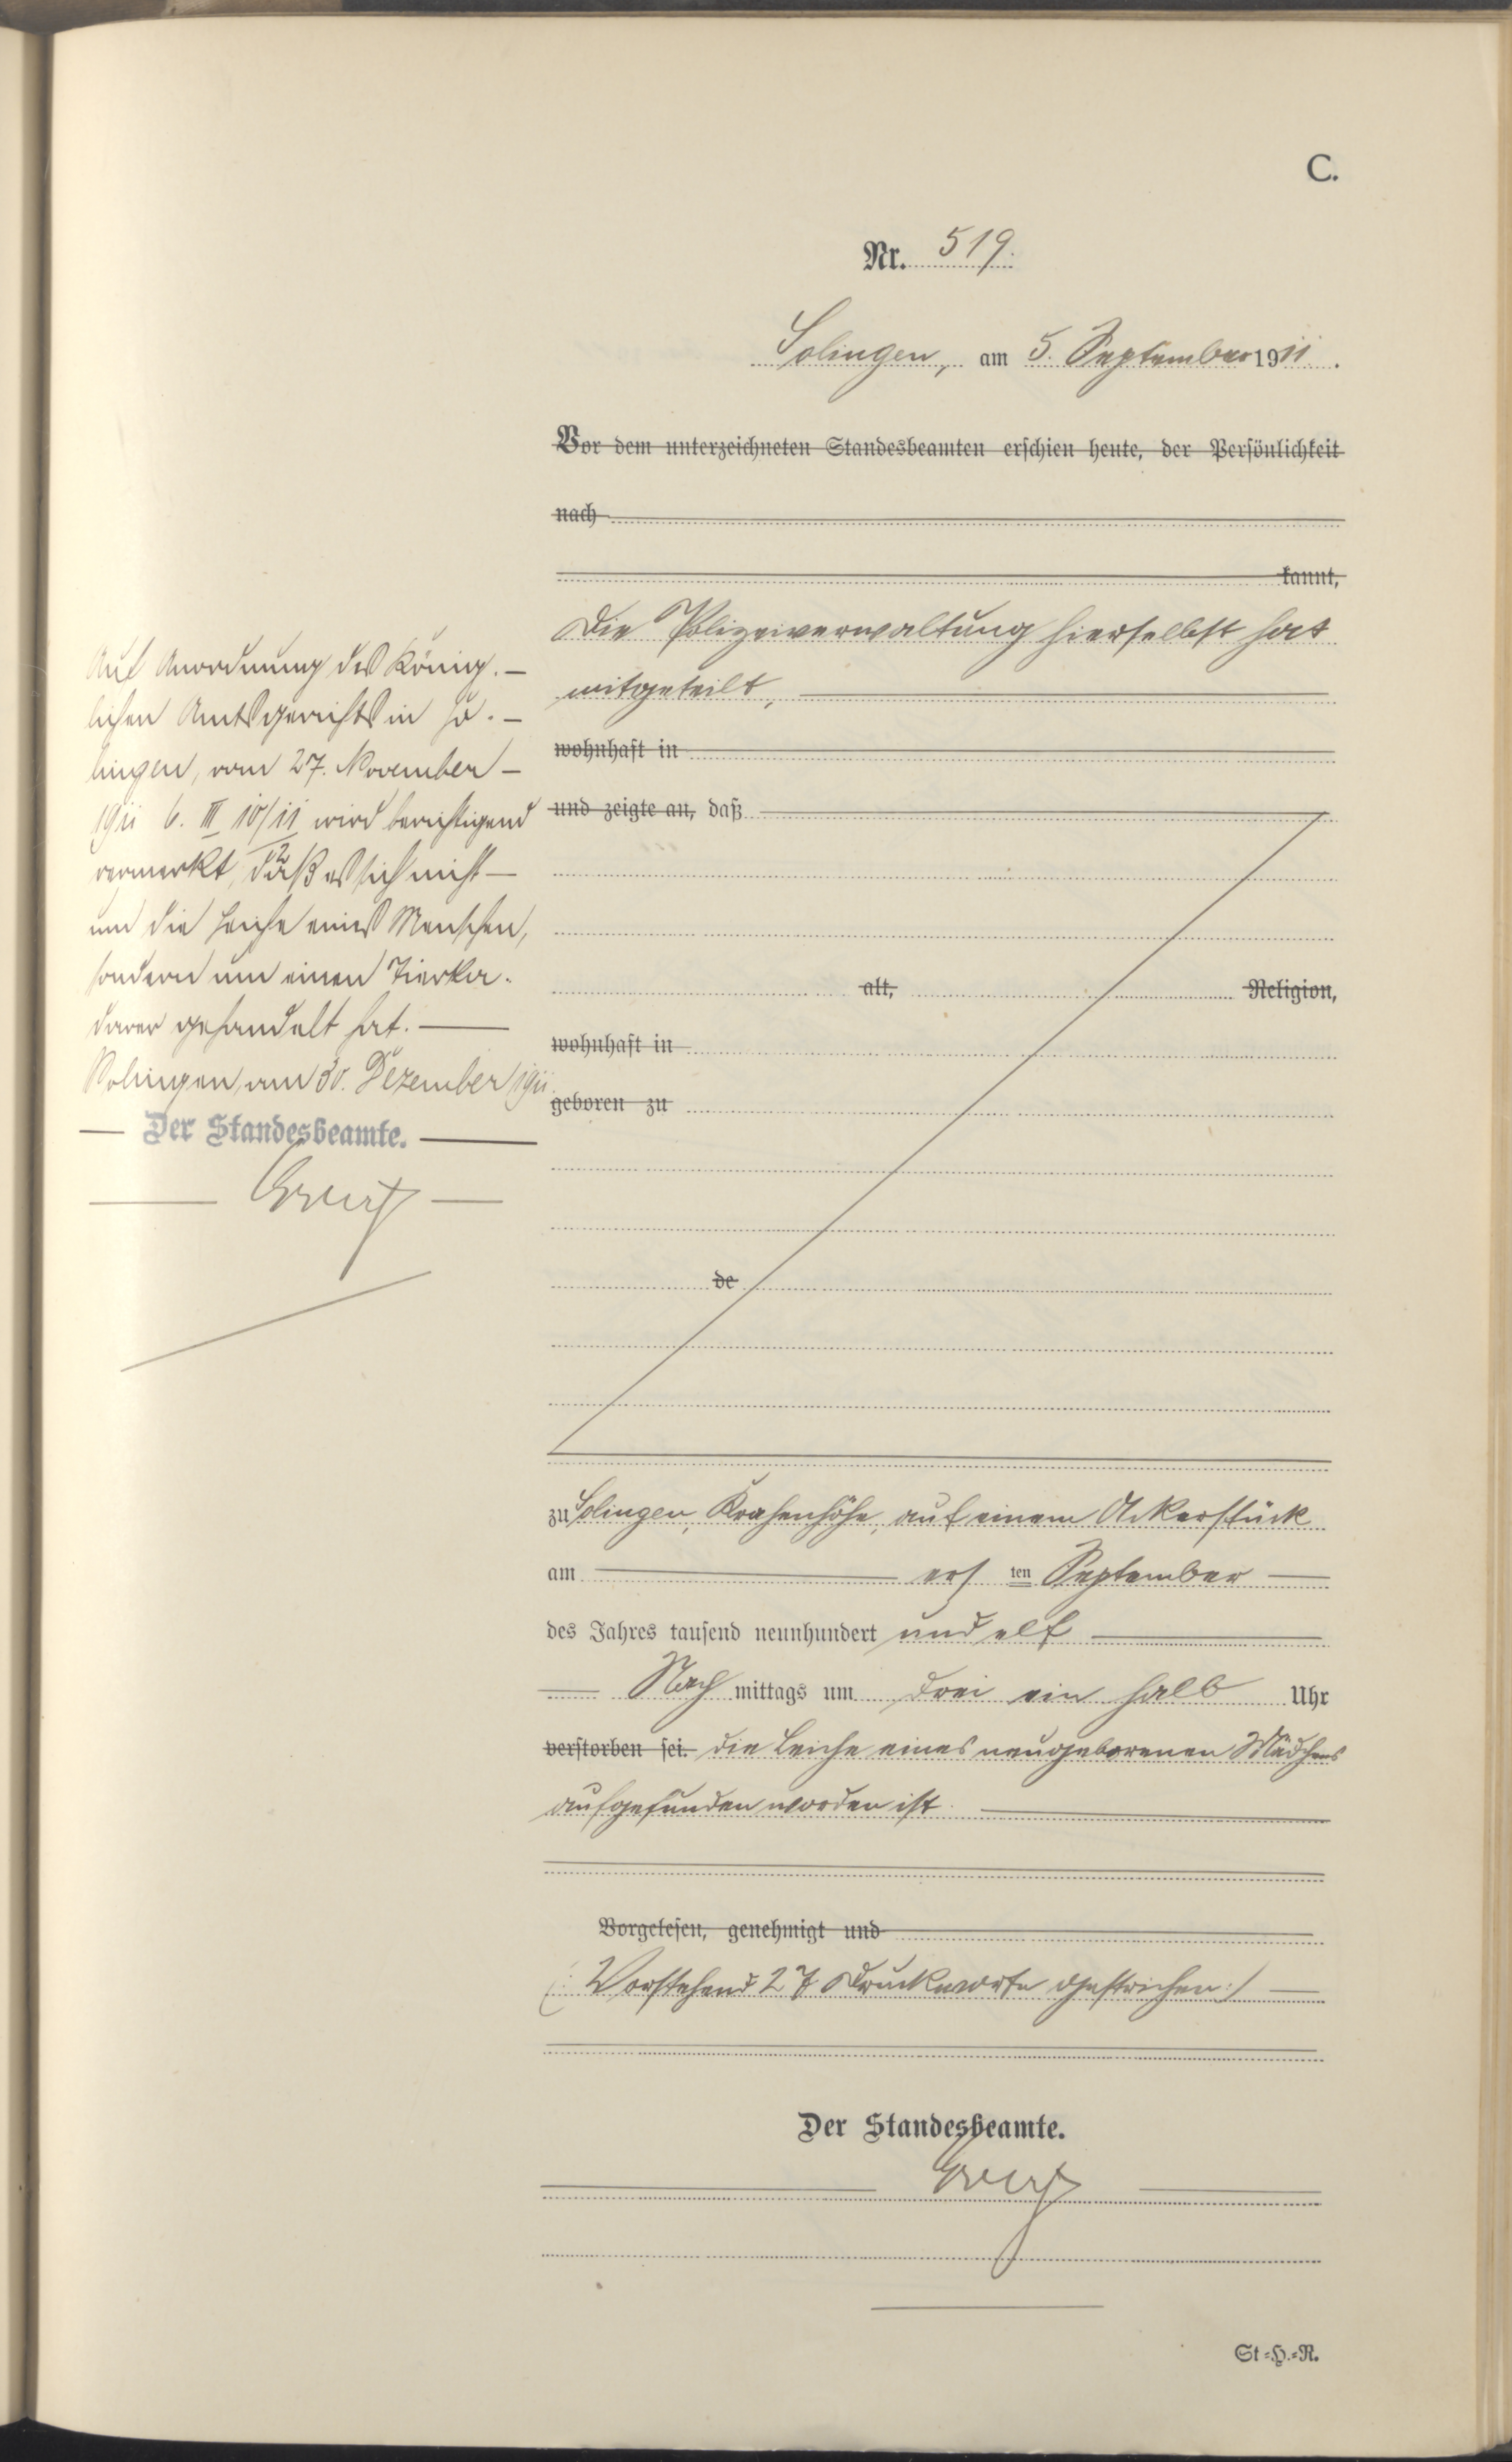 C.
Nr. 519.
Solingen, am 5. September 1911.
Vor dem unterzeichneten Standesbeamten erschien heute, der Persönlichkeit
nach
kannt,
Die Polizeiverwaltung hierselbst hat
mitgeteilt,
wohnhaft in
und zeigte an, daß
alt, Religion,
wohnhaft in
geboren zu
de
zu Solingen, Krahenhöhe, auf einem Ackerstück
am ersten September
des Jahres tausend neunhundert und elf
Nachmittags um drei ein halb Uhr
verstorben sei. die Leiche eines neugeborenen Mädchens
aufgefunden worden ist.
Vorgelesen, genehmigt und
(: Vorstehend 27 Druckworte gestrichen :)
Der Standesbeamte.
St.=H.=R.
Auf Anordnung des König.-
lichen Amtsgerichts in So.-
lingen, vom 27. November
1911 6. III 10/11 wird berichtigend
2
vermerkt, daß es sich nicht
um die Leiche eines Menschen,
sondern um einen Tierka-
daver gehandelt hat.
Solingen, am 30. Dezember 1911.
Der Standesbeamte.